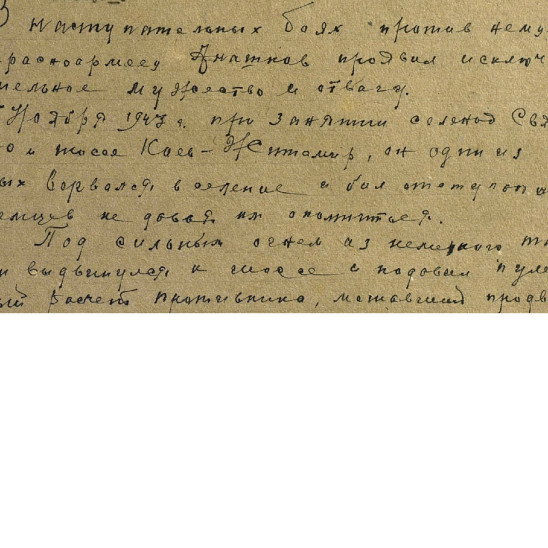 В наступательных боях против нему
расноармеец Анашков проявил исключ
тельное мужество и отвагу.
Ноября 1943 г. при занятии селения Свя
о и шоссе Киев-Житомир, он один из
ых ворвался в селение и бил отступа
емцев не давая им опомниться.
Под сильным огнем из немецкого та
и выдвинулся к шоссе и подавил пуле
ый расчет противника, мешавший продв